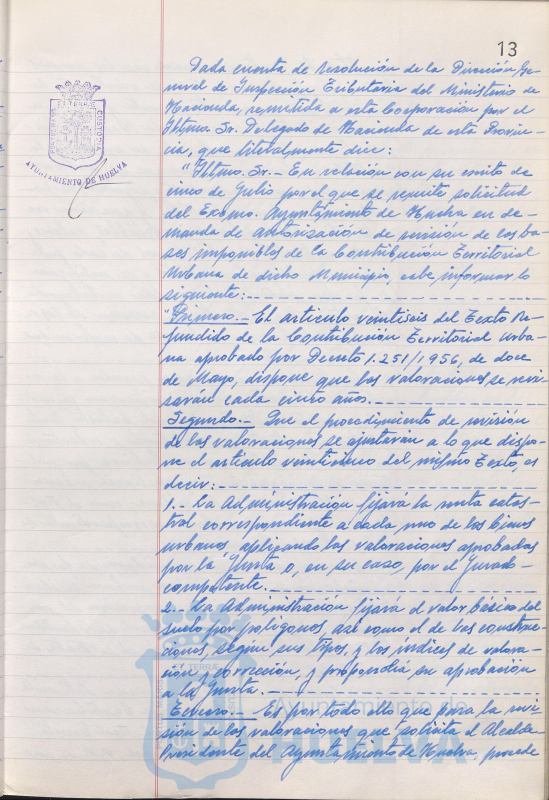 13
Dada cuenta de Resolución de la Dirección Ge-
neral de Inspección Tributaria del Ministerio de
Hacienda, remitida a esta Corporación por el
Iltmo. Sr. Delegado de Hacienda de esta Provin-
cia, que literalmente dice:
"Iltmo. Sr.- En relación con su escrito de
cinco de Julio por el que se remite solicitud
del Excmo. Ayuntamiento de Huelva en de-
manda de autorización de revisión de las ba-
ses imponibles de la Contribución Territorial
Urbana de dicho Municipio, cabe informar lo
siguiente:
"Primero.- El articulo veintiseis del Texto Re-
fundido de la Contribución Territorial Urba-
na aprobado por Decreto 1.251/1956, de doce
de Mayo, dispone que las valoraciones se revi-
sarán cada cinco años.
Segundo.- Que el procedimiento de revisión
de las valoraciones se ajustarán a lo que dispo-
ne el articulo veinticinco del mismo Texto, es
decir:
1.- La Administración fijará la renta catas-
tral correspondiente a cada uno de los bienes
urbanos, aplicando las valoraciones aprobadas
por la Junta o, en su caso, por el Jurado
competente.
2.- La Administración fijará el valor básico del
suelo por poligonos, asi como el de las construc-
ciones, segun sus tipos, y los indices de valora-
ción y corrección, y propondrá su aprobación
a la Junta.
Tercero.- Es por todo ello que para la revi-
sión de las valoraciones que solicita el Alcalde
Presidente del Ayuntamiento de Huelva, procede
AYUNTAMIENTO DE HUELVA
PORTUS MARIS ET TERRAE CUSTODIA
Ayuntamiento de
HUELVA